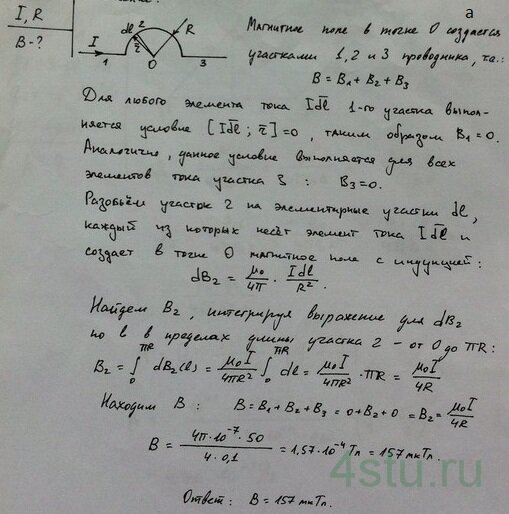 а
I, R
B-?
dl 2 R
I r
1 0 3
Магнитное поле в точке О создается
участками 1, 2 и 3 проводника, т.е.:
B = B₁ + B₂ + B₃
Для любого элемента тока Idl 1-го участка выпол-
няется условие [Idl; r] = 0, таким образом B₁ = 0.
Аналогично, данное условие выполняется для всех
элементов тока участка 3 : B₃ = 0.
Разобьём участок 2 на элементарные участки dl,
каждый из которых несёт элемент тока Idl и
создает в точке О магнитное поле с индукцией:
dB₂ = μ₀/4π · Idl/R².
Найдем B₂, интегрируя выражение для dB₂
по l в пределах длины участка 2 - от 0 до πR:
B₂ = ∫₀^πR dB₂(l) = μ₀I/4πR² ∫₀^πR dl = μ₀I/4πR² · πR = μ₀I/4R
Находим B : B = B₁ + B₂ + B₃ = 0 + B₂ + 0 = B₂ = μ₀I/4R
B = 4π·10⁻⁷·50 / 4·0,1 = 1,57·10⁻⁴ Тл = 157 мкТл.
4stu.ru
Ответ: B = 157 мкТл.